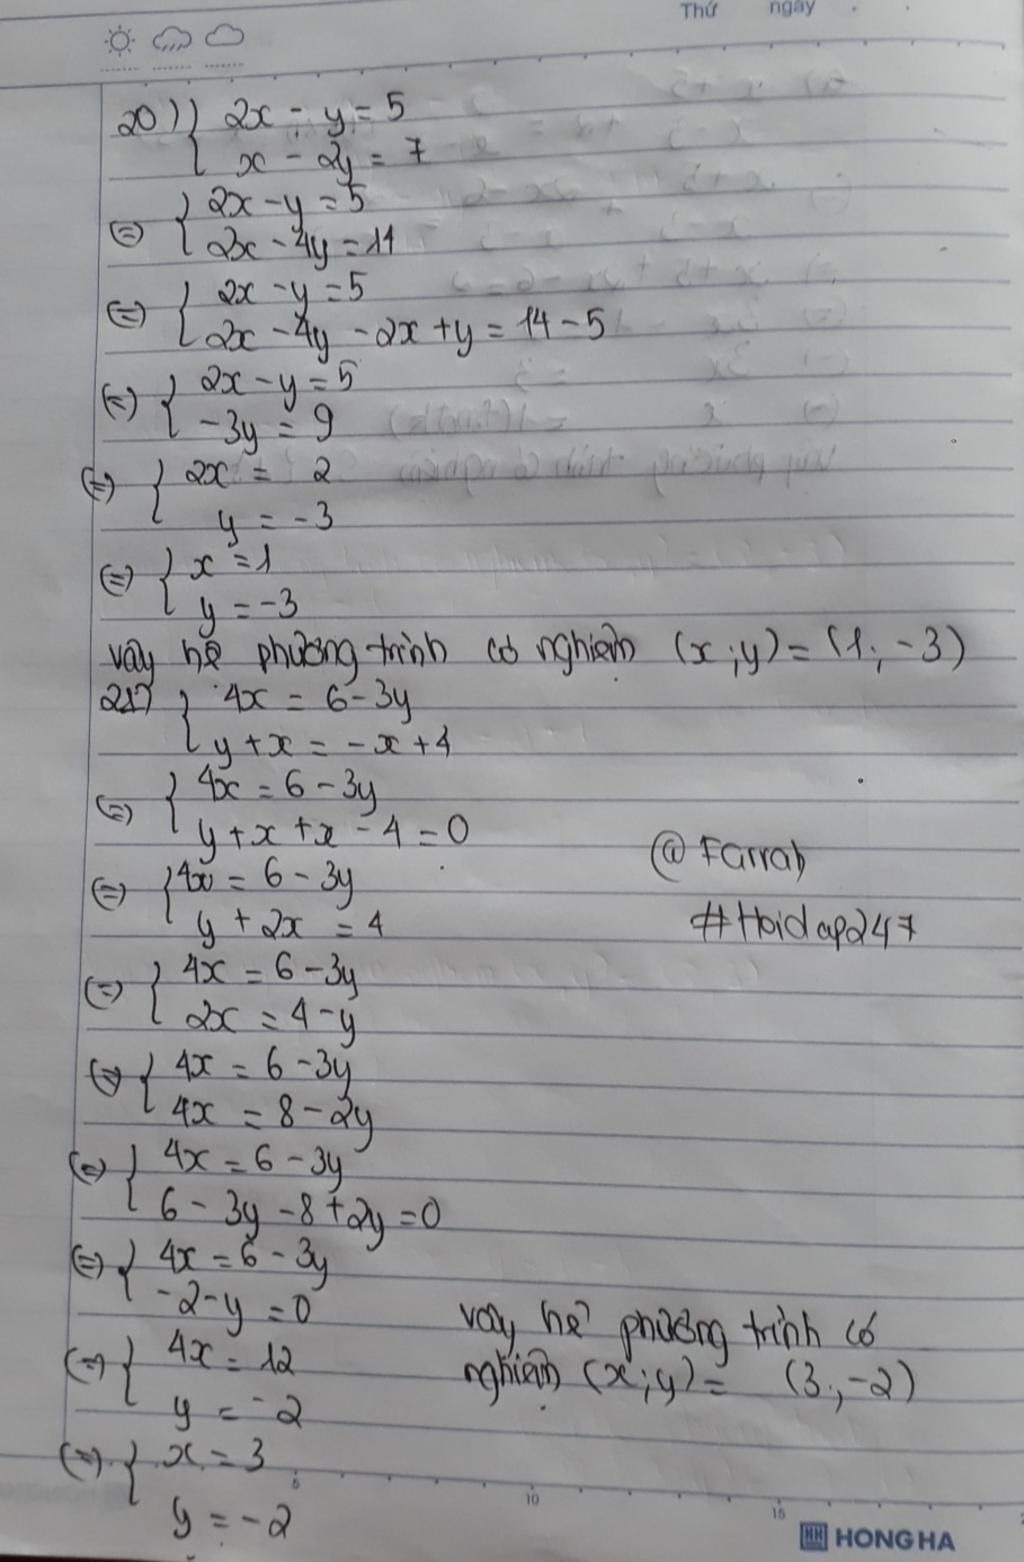 Thứ ngày
20) { 2x - y = 5
x - 2y = 7
(=) { 2x - y = 5
2x - 4y = 14
(=) { 2x - y = 5
2x - 4y - 2x + y = 14 - 5
(=) { 2x - y = 5
-3y = 9
(=) { 2x = 2
y = -3
(=) { x = 1
y = -3
vậy hệ phương trình có nghiệm (x;y) = (1; -3)
21) { 4x = 6 - 3y
y + x = -x + 4
(=) { 4x = 6 - 3y
y + x + x - 4 = 0
@Farrah
(=) { 4x = 6 - 3y
y + 2x = 4
#Hoidap247
(=) { 4x = 6 - 3y
2x = 4 - y
(=) { 4x = 6 - 3y
4x = 8 - 2y
(=) { 4x = 6 - 3y
6 - 3y - 8 + 2y = 0
(=) { 4x = 6 - 3y
-2 - y = 0
(=) { 4x = 12
y = -2
(=) { x = 3
y = -2
vậy hệ phương trình có
nghiệm (x;y) = (3; -2)
5 10 15
HH HONG HA